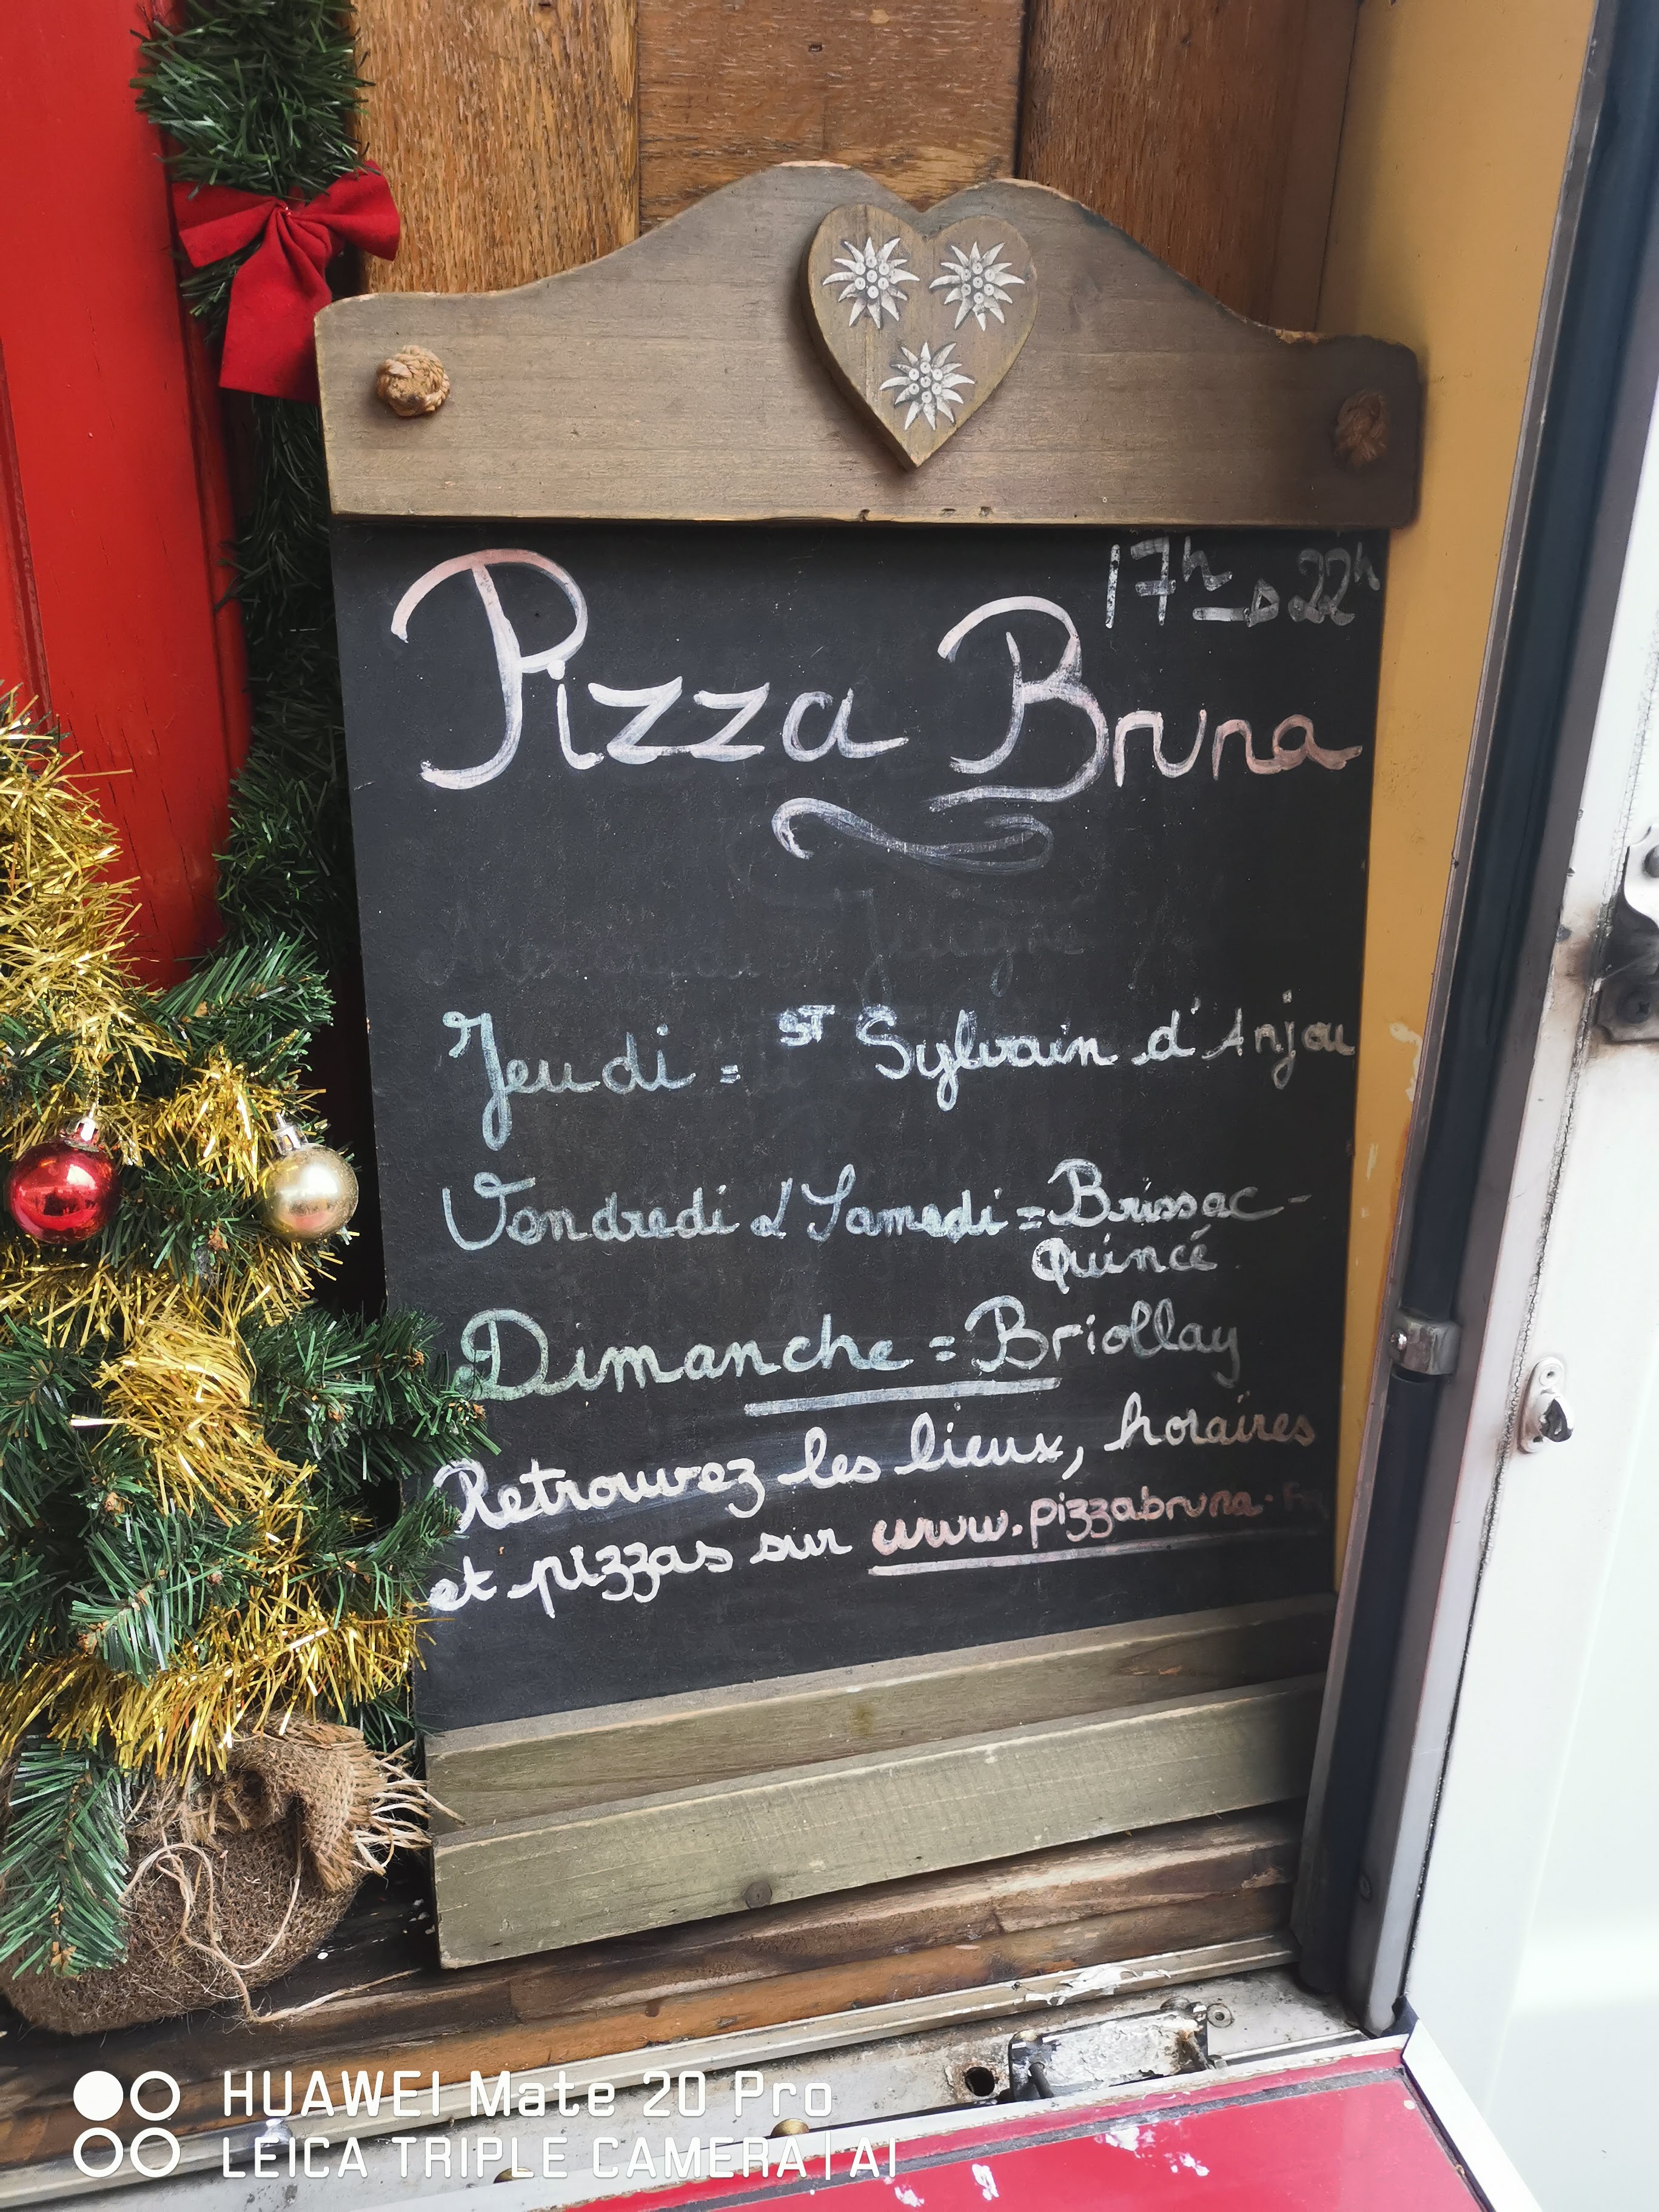 17h → 22h
Pizza Bruna
Jeudi = ST Sylvain d'Anjou
Vendredi & Samedi = Brissac-
Quincé
Dimanche = Briollay
Retrouvez les lieux, horaires
et pizzas sur www.pizzabruna.
HUAWEI Mate 20 Pro
LEICA TRIPLE CAMERA | AI